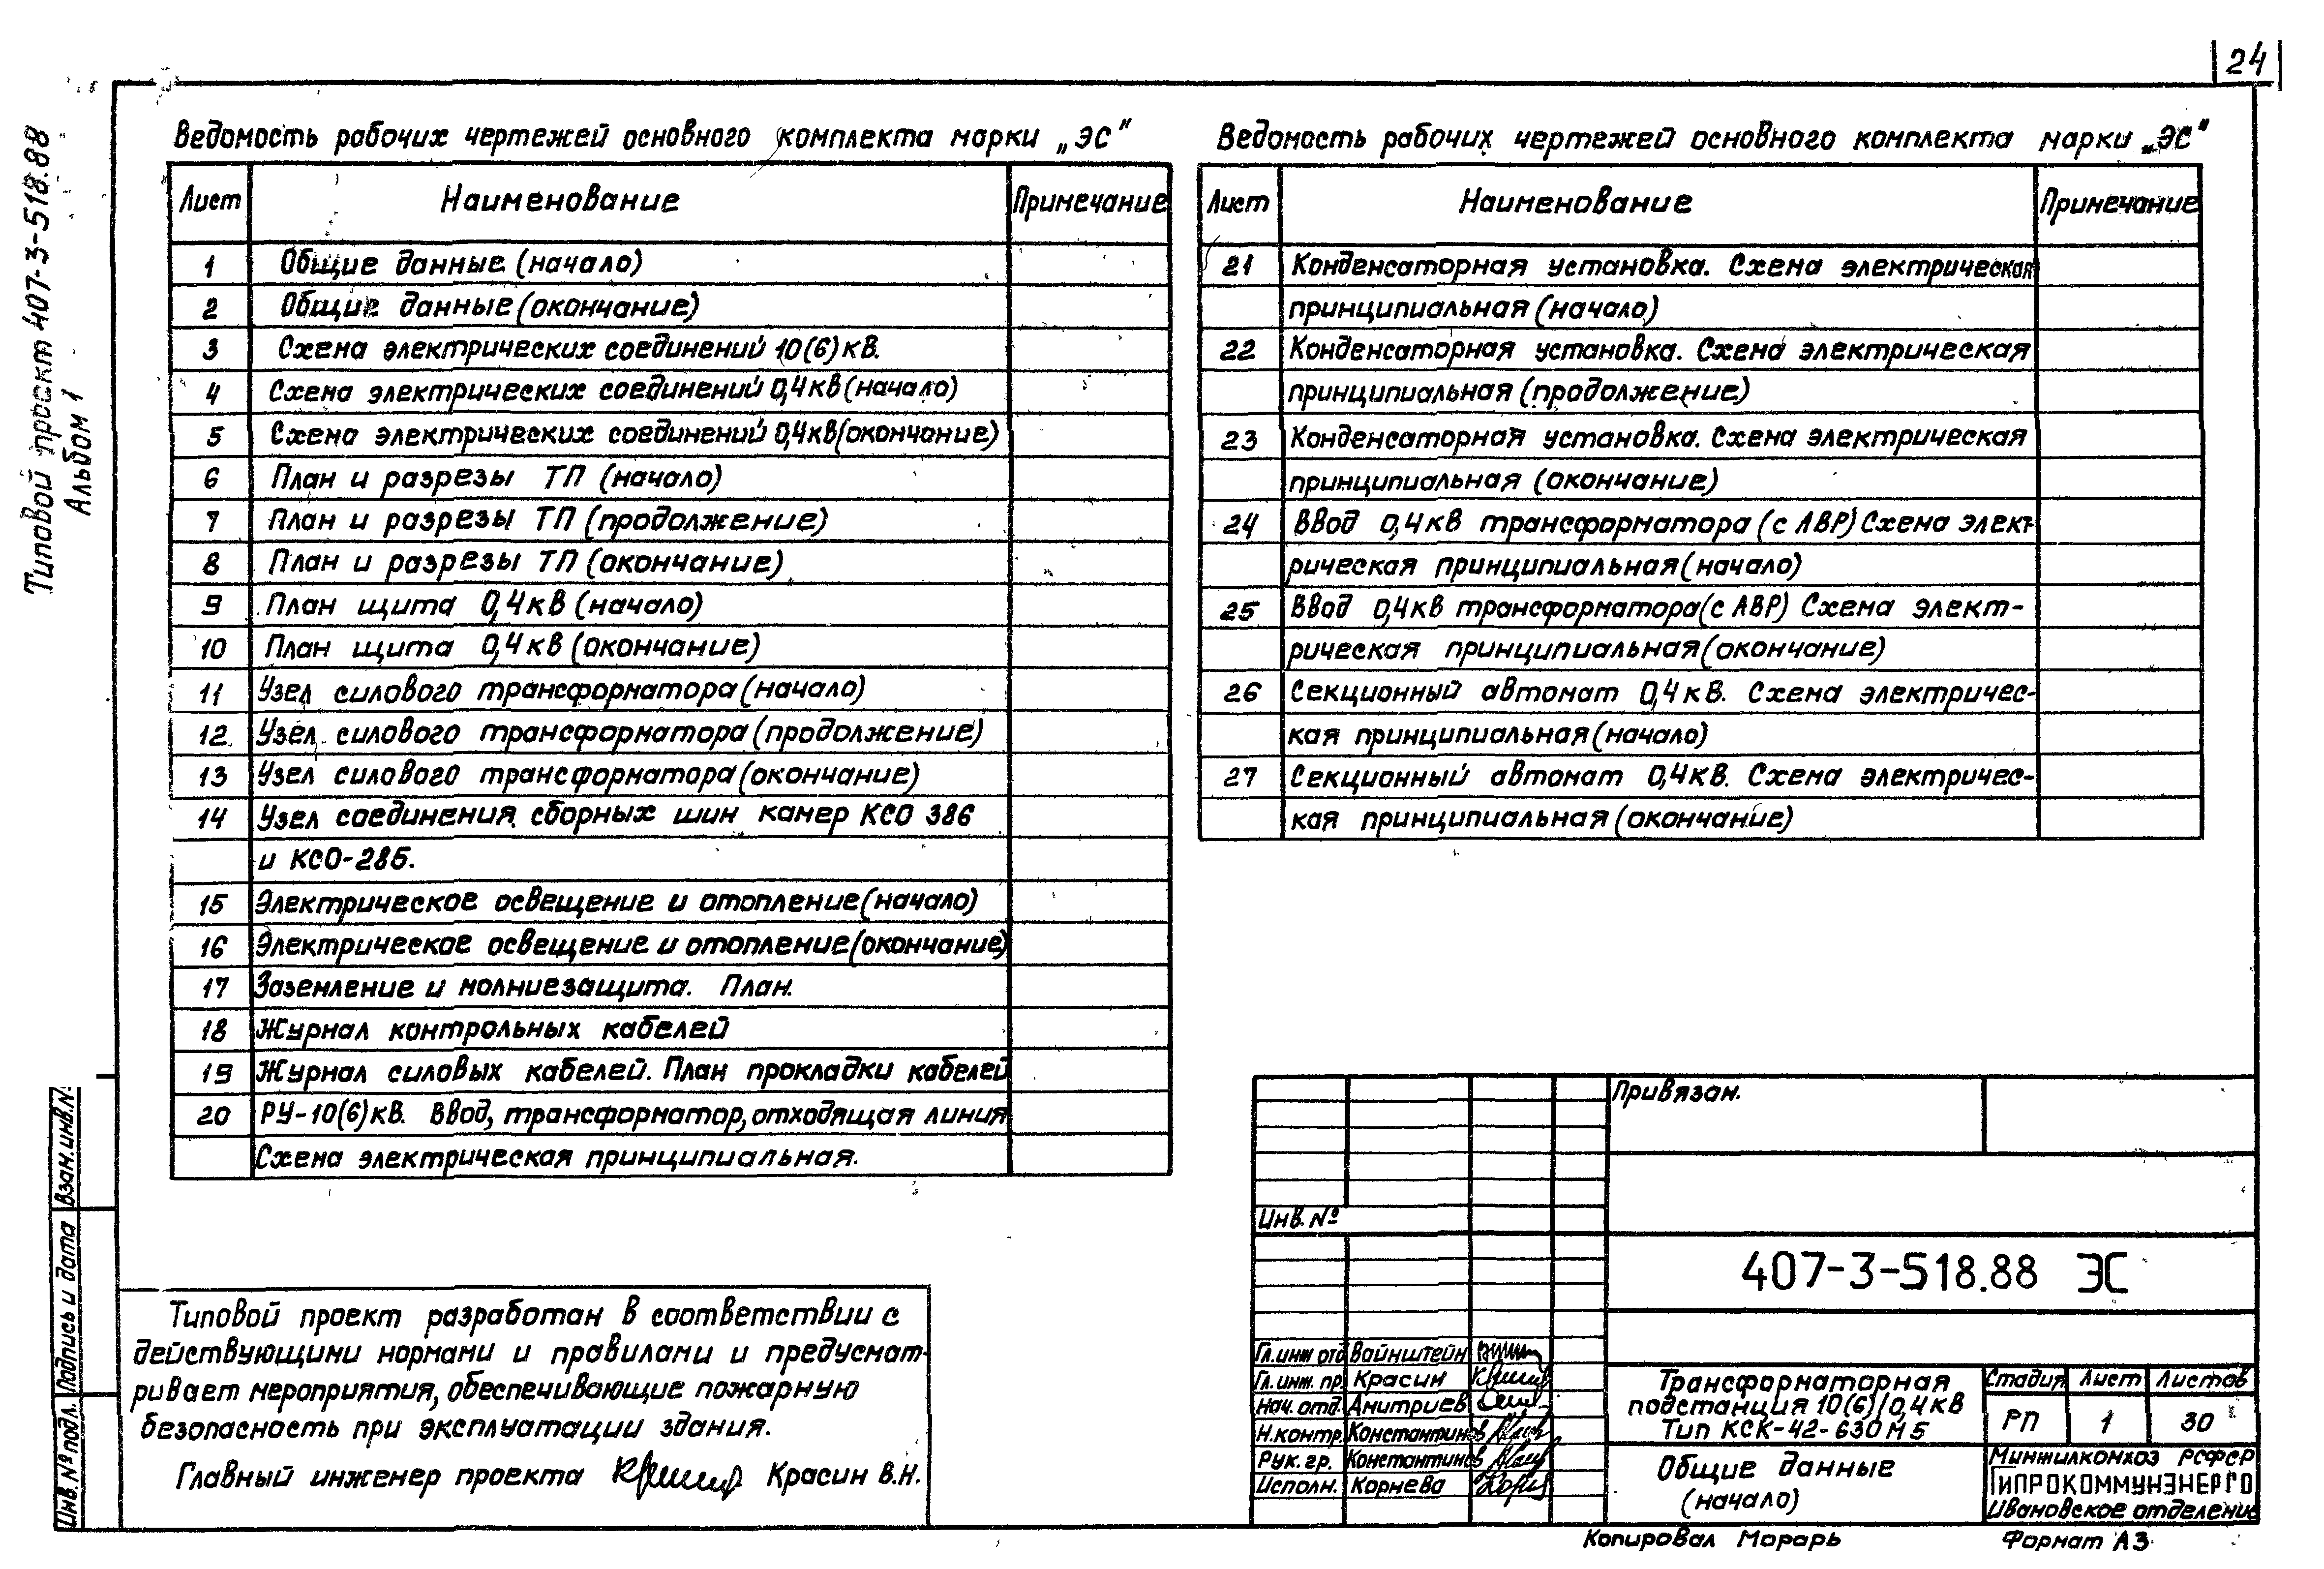 24
Типовой проект 407-3-518.88
Альбом 1
Ведомость рабочих чертежей основного комплекта марки „ЭС"
Лист Наименование Примечание
1 Общие данные (начало)
2 Общие данные (окончание)
3 Схема электрических соединений 10(6)кВ.
4 Схема электрических соединений 0,4кВ(начало)
5 Схема электрических соединений 0,4кВ(окончание)
6 План и разрезы ТП (начало)
7 План и разрезы ТП (продолжение)
8 План и разрезы ТП (окончание)
9 План щита 0,4кВ (начало)
10 План щита 0,4кВ (окончание)
11 Узел силового трансформатора(начало)
12 Узел силового трансформатора(продолжение)
13 Узел силового трансформатора(окончание)
14 Узел соединения сборных шин камер КСО 386
и КСО-285.
15 Электрическое освещение и отопление(начало)
16 Электрическое освещение и отопление(окончание)
17 Заземление и молниезащита. План.
18 Журнал контрольных кабелей
19 Журнал силовых кабелей. План прокладки кабелей
20 РУ-10(6)кВ. Ввод, трансформатор, отходящая линия
Схема электрическая принципиальная.
Ведомость рабочих чертежей основного комплекта марки „ЭС"
Лист Наименование Примечание
21 Конденсаторная установка. Схема электрическая
принципиальная (начало)
22 Конденсаторная установка. Схема электрическая
принципиальная (продолжение)
23 Конденсаторная установка. Схема электрическая
принципиальная (окончание)
24 Ввод 0,4кВ трансформатора (с АВР) Схема элект-
рическая принципиальная(начало)
25 Ввод 0,4кВ трансформатора(с АВР) Схема элект-
рическая принципиальная(окончание)
26 Секционный автомат 0,4кВ. Схема электричес-
кая принципиальная(начало)
27 Секционный автомат 0,4кВ. Схема электричес-
кая принципиальная(окончание)
Типовой проект разработан в соответствии с
действующими нормами и правилами и предусмат-
ривает мероприятия, обеспечивающие пожарную
безопасность при эксплуатации здания.
Главный инженер проекта Красин В.Н.
Инв.№ подл. Подпись и дата Взам.инв.№
Привязан.
Инв.№
407-3-518.88 ЭС
Гл.инж отд Вайнштейн
Гл.инж. пр. Красин
Нач. отд. Дмитриев
Н.контр. Константинов
Рук.гр. Константинов
Исполн. Корнева
Трансформаторная
подстанция 10(6)/0,4кВ
Тип КСК-42-630М5
Стадия Лист Листов
РП 1 30
Общие данные
(начало)
Минжилкомхоз РСФСР
ГИПРОКОММУНЭНЕРГО
Ивановское отделение
Копировал Морарь
Формат А3